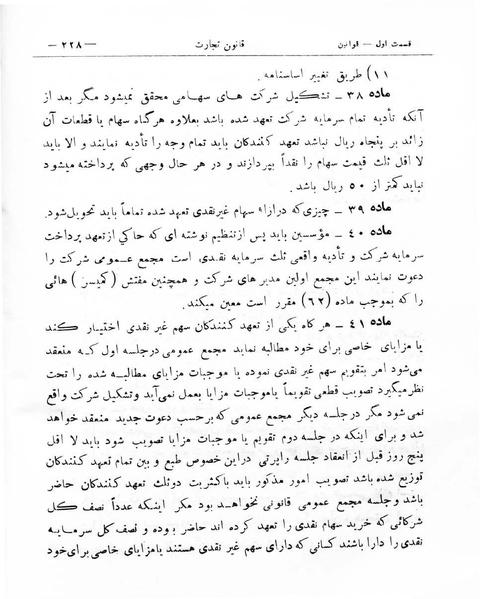 قسمت اول — قوانین    قانون تجارت    — ۲۲۸ —
۱۱) طریق تغییر اساسنامه .
ماده ۳۸ — تشکیل شرکت های سهامی محقق نمیشود مگر بعد از
آنکه تأدیه تمام سرمایه شرکت تعهد شده باشد بعلاوه هرگاه سهام یا قطعات آن
زائد بر پنجاه ریال نباشد تعهد کنندگان باید تمام وجه را تأدیه نمایند و الا باید
لا اقل ثلث قیمت سهام را نقداً بپردازند و در هر حال وجهی که پرداخته میشود
نباید کمتر از ۵۰ ریال باشد .
ماده ۳۹ — چیزی که در ازاء سهام غیرنقدی تعهد شده تماماً باید تحویل شود.
ماده ۴۰ — مؤسسین باید پس از تنظیم نوشته ای که حاکی از تعهد پرداخت
سرمایه شرکت و تأدیه واقعی ثلث سرمایه نقدی است مجمع عمومی شرکت را
دعوت نمایند این مجمع اولین مدیر های شرکت و همچنین مفتش (کمیسر) هائی
را که بموجب ماده (۶۲) مقرر است معین میکند.
ماده ۴۱ — هر گاه یکی از تعهد کنندگان سهم غیر نقدی اختیار کند
یا مزایای خاصی برای خود مطالبه نماید مجمع عمومی در جلسه اول که منعقد
می‌شود امر بتقویم سهم غیر نقدی نموده یا موجبات مزایای مطالبه شده را تحت
نظر میگیرد تصویب قطعی تقویماً یا موجبات مزایا بعمل نمی‌آید و تشکیل شرکت واقع
نمی شود مگر در جلسه دیگر مجمع عمومی که بر حسب دعوت جدید منعقد خواهد
شد و برای اینکه در جلسه دوم تقویم یا موجبات مزایا تصویب شود باید لا اقل
پنج روز قبل از انعقاد جلسه راپرتی در این خصوص طبع و بین تمام تعهد کنندگان
توزیع شده باشد تصویب امور مذکور باید باکثریت دو ثلث تعهد کنندگان حاضر
باشد و جلسه مجمع عمومی قانونی نخواهد بود مگر اینکه عدداً نصف کل
شرکائی که خرید سهام نقدی را تعهد کرده اند حاضر بوده و نصف کل سرمایه
نقدی را دارا باشند کسانی که دارای سهم غیر نقدی هستند یا مزایای خاصی برای خود